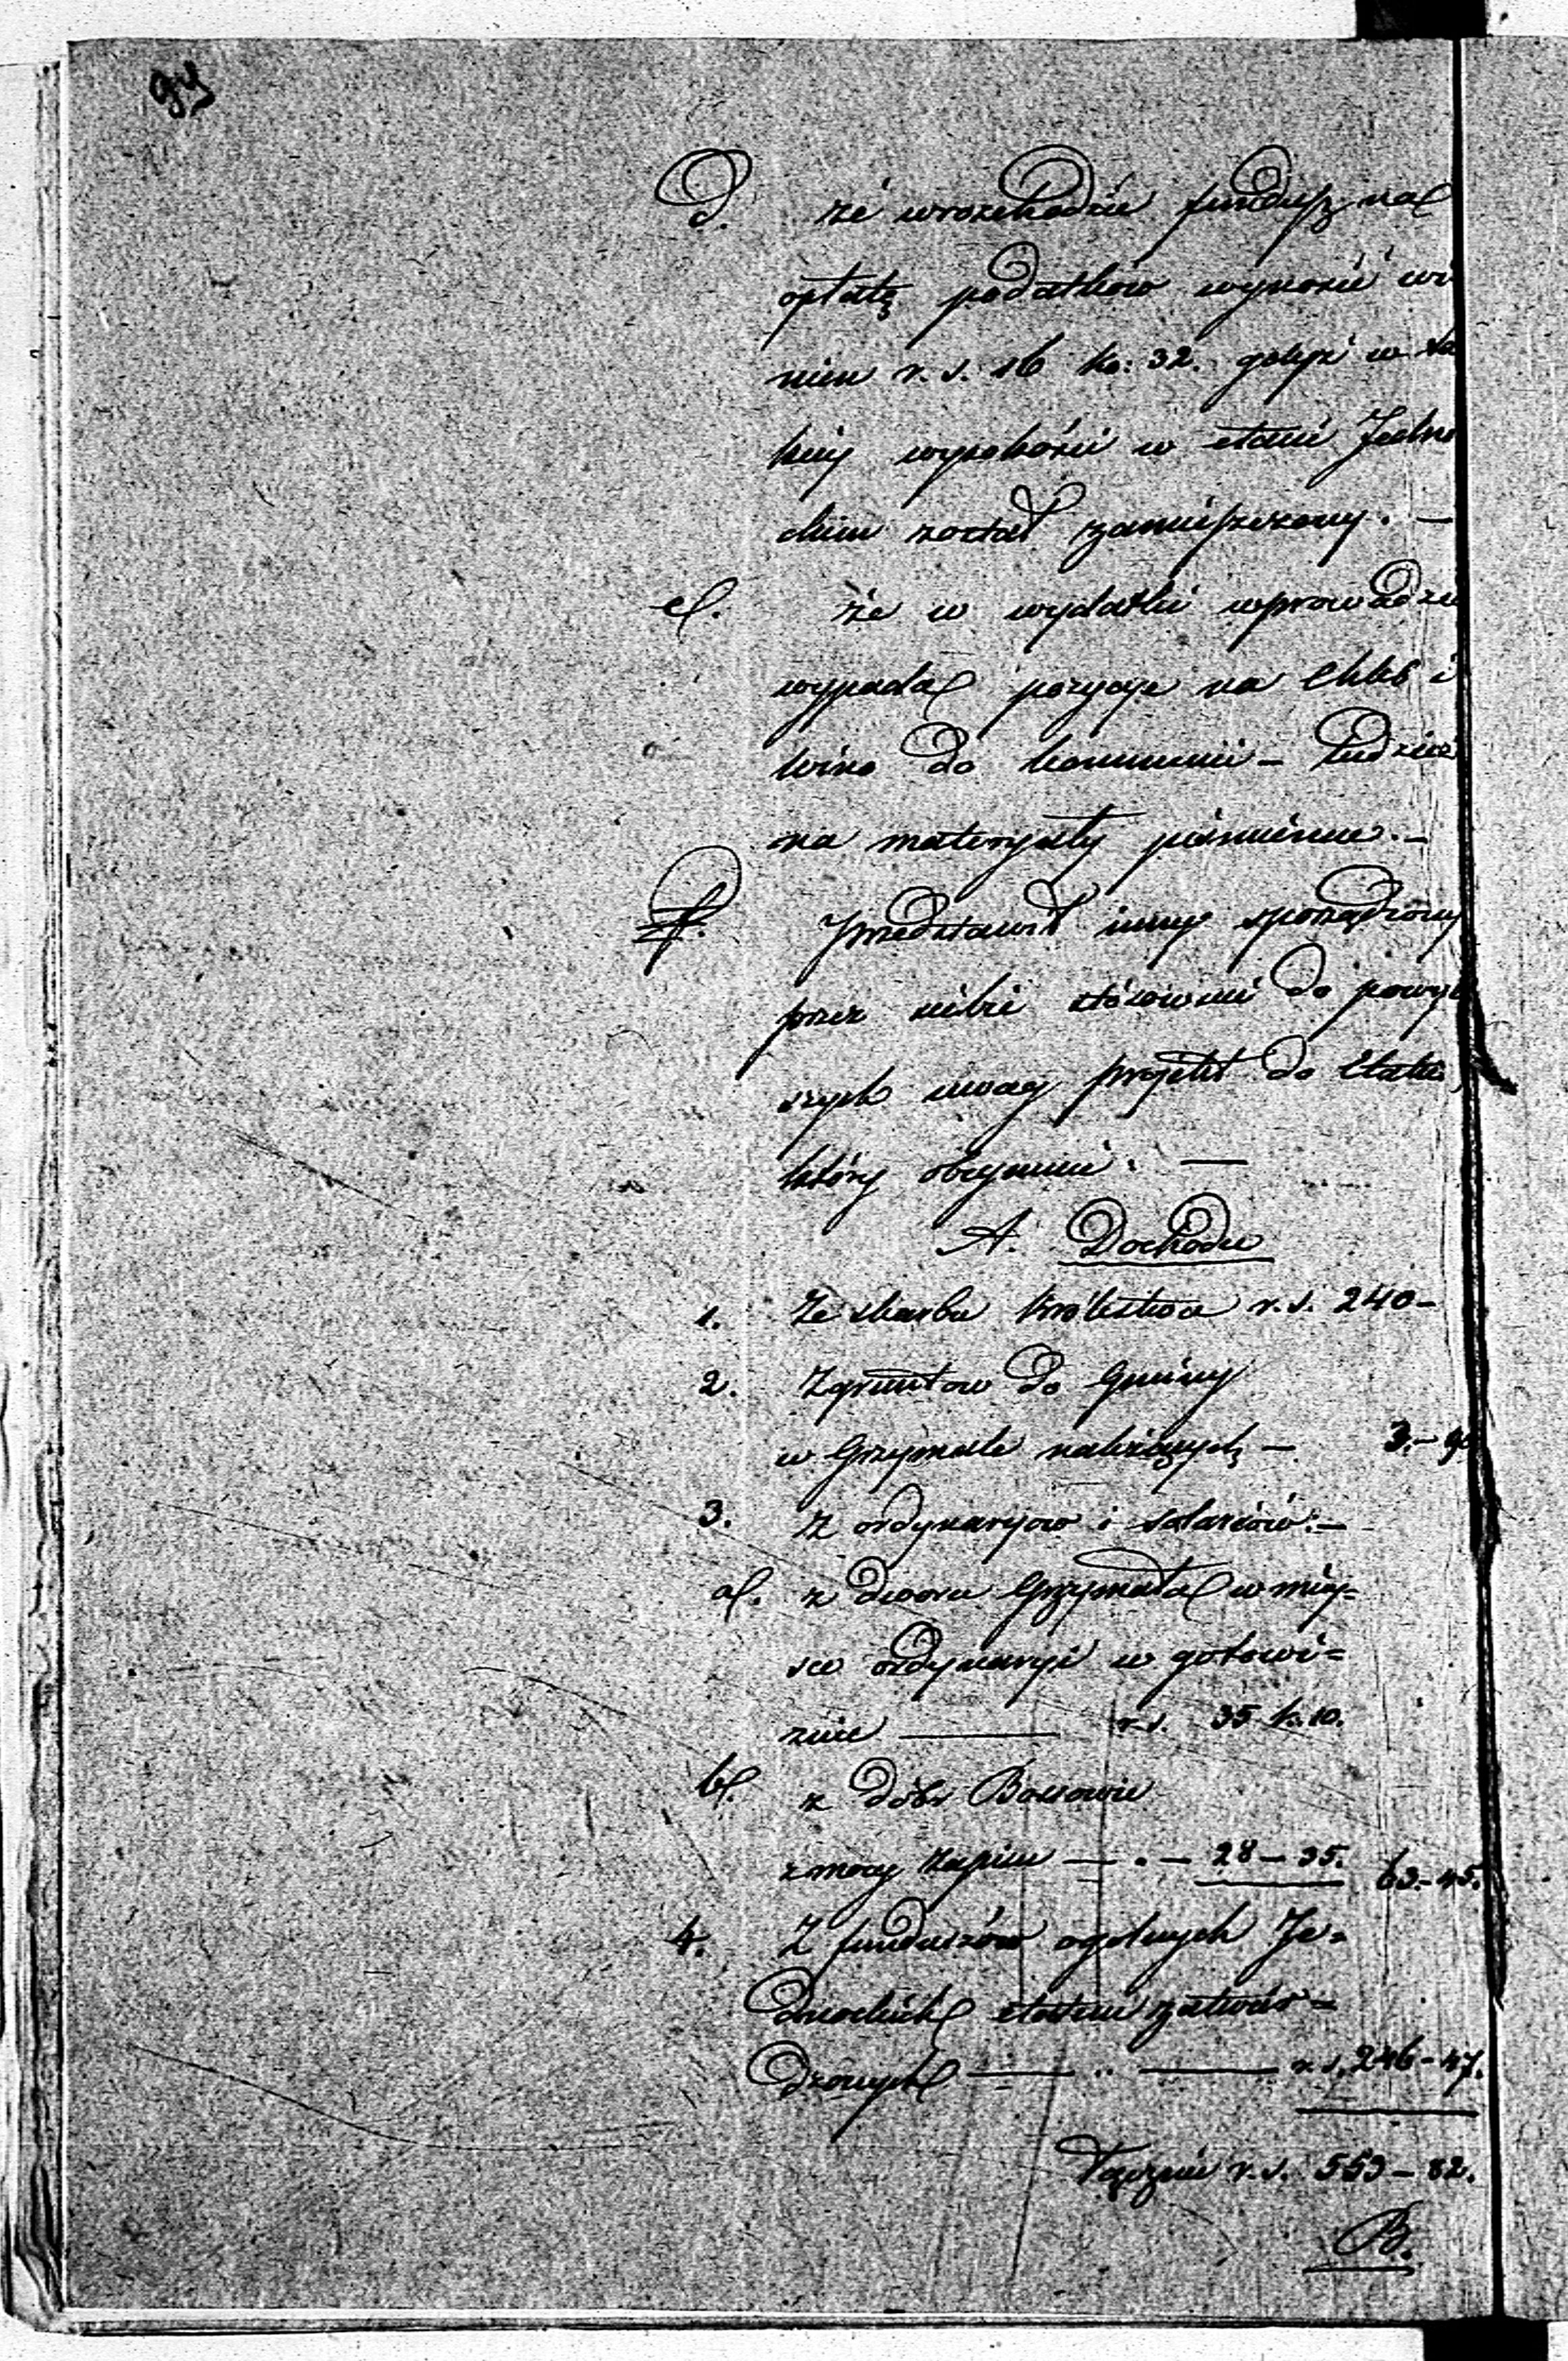 97
d. że w rozchodzie fundusz na
opłatę podatków wynosić wi
nien r. s. 16 ko: 32. gdyż w ta
kiej wysokości w etacie Jedno
olnim został zamieszczony. —
e. że w wydatki wprowadzić
wypada pozycye na chleb i
wino do kommunii – tudzież
na materyały piśmienne. –
f. przedstawił inny sporządzony
przez siebie stósownie do powyż
szych uwag projekt do Etatu,
który obejmuie. —
A. Dochodu
1. Ze skarbu Królestwa r. s. 240 –
2. Z gruntow do Gminy
w Grzymale należących – 3. – 90
3. Z ordynaryow i salariów. –
a. z dworu Grzymała w miej-
sce ordynaryi w gotowi=
znie — r. s. 35 k. 10.
b. z dóbr Borowie
z mocy zapisu — . — 28 – 35. 63. – 45.
4. Z funduszów ogólnych Je=
dnorocznych etatem zatwier=
dzonych — .. — r. s. 246 – 47.
Łącznie r. s. 553 – 82.
B.